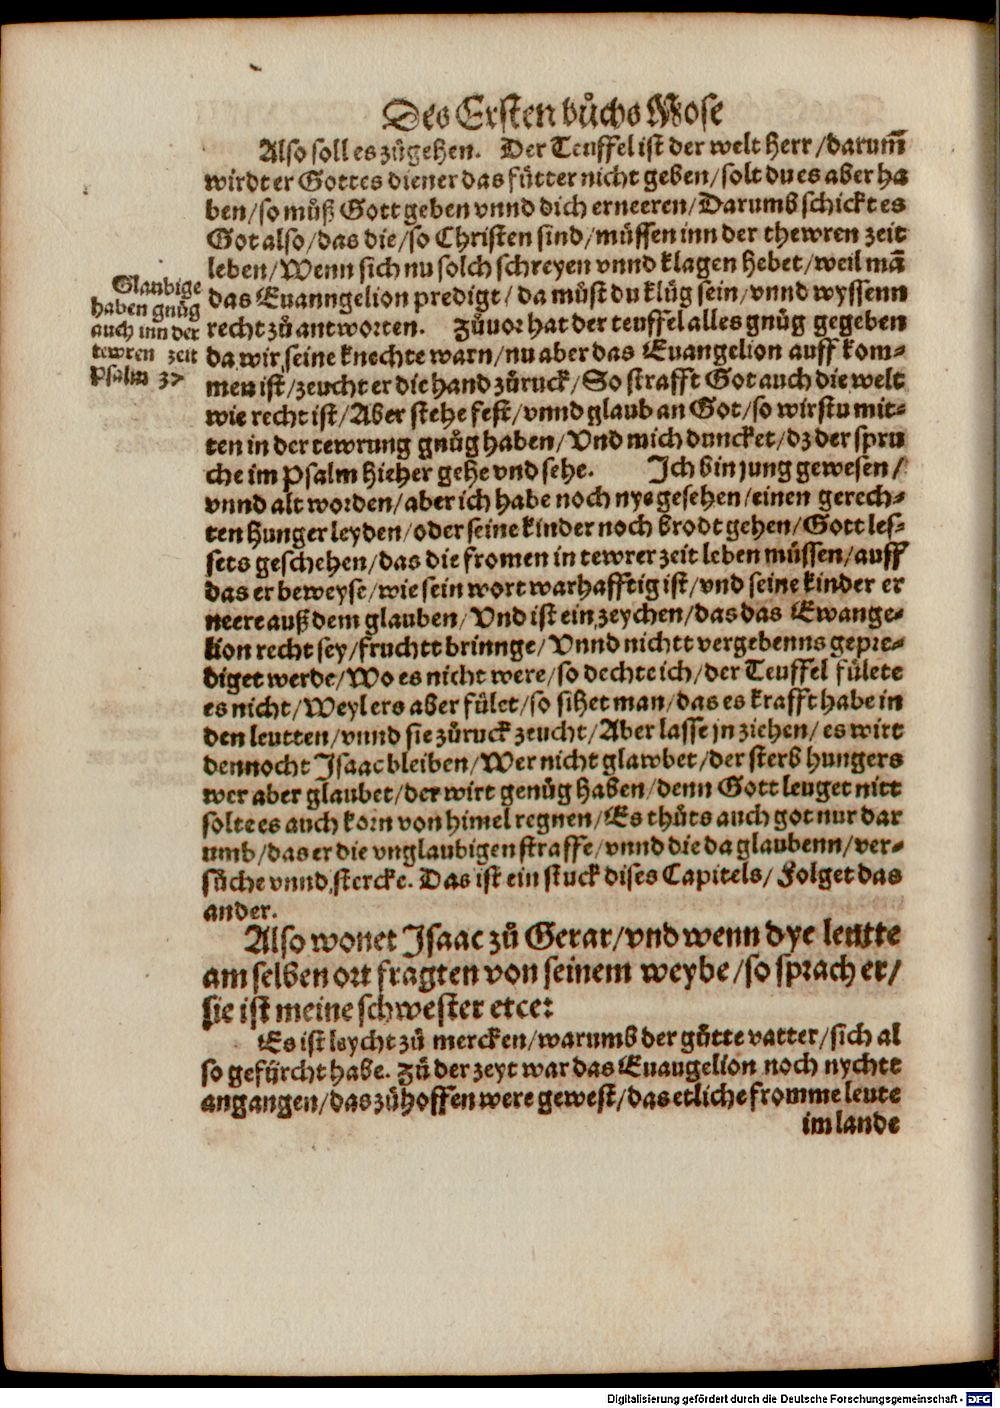 Des Ersten bůchs Mose
Also soll es zůgehen. Der Teuffel ist der welt herr/darum̃
wirdt er Gottes diener das fůtter nicht geben/solt du es aber ha
ben/so můß Gott geben vnnd dich erneeren/Darumb schickt es
Got also/das die/so Christen sind/müssen inn der thewren zeit
leben/Wenn sich nu solch schreyen vnnd klagen hebet/weil mã
das Euanngelion predigt/da můst du klůg sein/vnnd wyssenn
recht zů antworten. Zůuor hat der teuffel alles gnůg gegeben
da wir seine knechte warn/nu aber das Euangelion auff kom-
men ist/zeucht er die hand zůruck/So strafft Got auch die welt
wie recht ist/Aber stehe fest/vnnd glaub an Got/so wirstu mit-
ten in der tewrung gnůg haben/Vnd mich duncket/dz der spru
che im Psalm hieher gehe vnd sehe. Ich bin jung gewesen/
vnnd alt worden/aber ich habe noch nye gesehen/einen gerech-
ten hunger leyden/oder seine kinder noch brodt gehen/Gott les-
sets geschehen/das die fromen in tewrer zeit leben müssen/auff
das er beweyse/wie sein wort warhafftig ist/vnd seine kinder er
neere auß dem glauben/Vnd ist ein zeychen/das das Ewange-
lion recht sey/fruchtt brinnge/Vnnd nichtt vergebenns gepre-
diget werde/Wo es nicht were/so dechte ich/der Teuffel fülete
es nicht/Weyl ers aber fület/so sihet man/das es krafft habe in
den leutten/vnnd sie zůruck zeucht/Aber lasse jn ziehen/es wirt
dennocht Isaac bleiben/Wer nicht glawbet/der sterb hungers
wer aber glaubet/der wirt genůg haben/denn Gott leuget nitt
solte es auch korn von himel regnen/Es thůts auch got nur dar
umb/das er die vnglaubigen straffe/vnnd die da glaubenn/ver-
sůche vnnd stercke. Das ist ein stuck dises Capitels/Folget das
ander.
Also wonet Isaac zů Gerar/vnd wenn dye leutte
am selben ort fragten von seinem weybe/so sprach er/
sie ist meine schwester etce:
Es ist leycht zů mercken/warumb der gůtte vatter/sich al
so gefürcht habe. Zů der zeyt war das Euangelion noch nychtt
angangen/das zůhoffen were gewest/das etliche fromme leute
im lande
Glaubige
haben gnůg
auch inn der
tewren zeit
Psalm 37
Digitalisierung gefördert durch die Deutsche Forschungsgemeinschaft - DFG